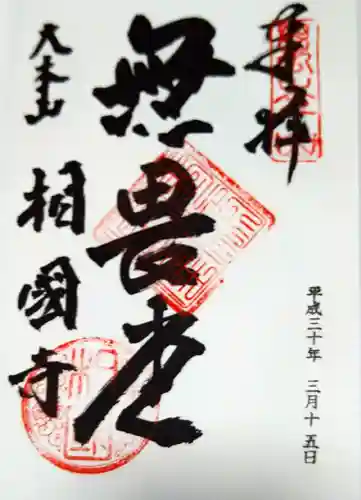 奉拝
平成三十年 三月十五日
無畏堂
大本山
相國寺